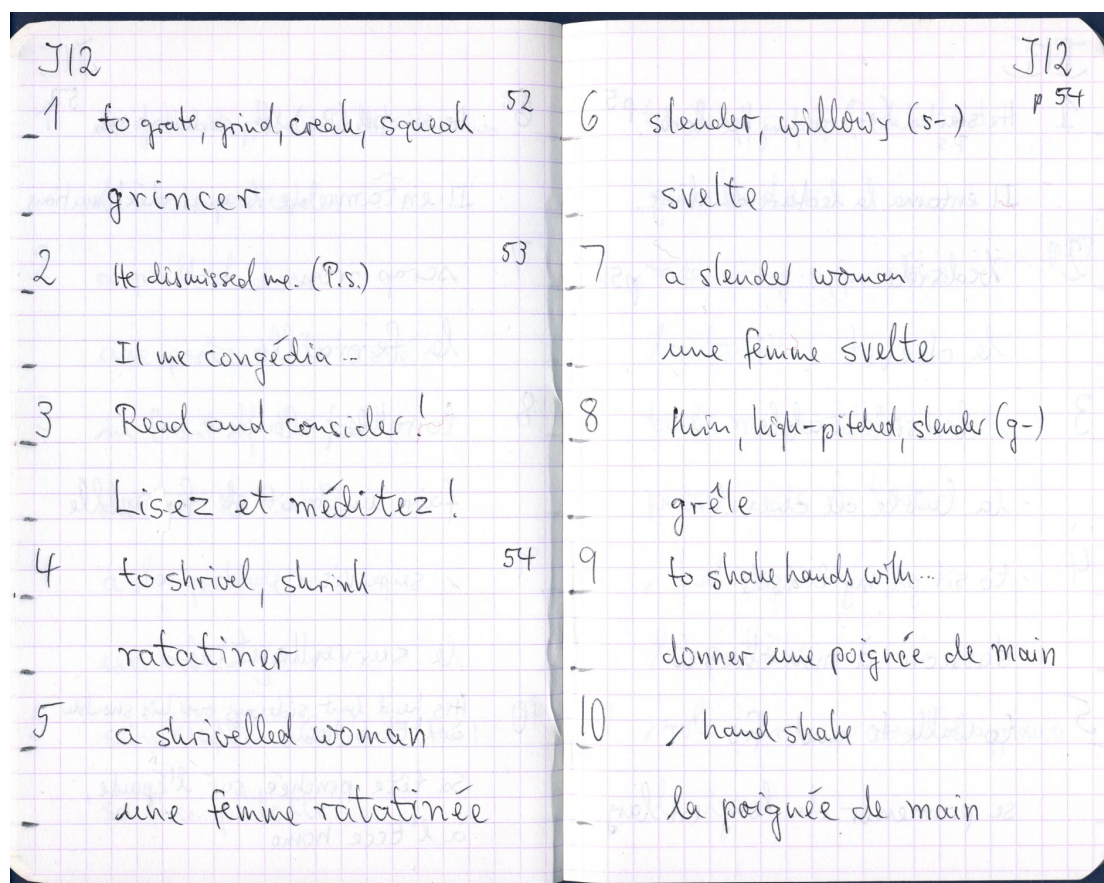 J12
1 to grate, grind, creak, squeak 52
grincer
2 He dismissed me. (P.s.) 53
Il me congédia...
3 Read and consider!
Lisez et méditez!
4 to shrivel, shrink 54
ratatiner
5 a shrivelled woman
une femme ratatinée
J12
p 54
6 slender, willowy (s-)
svelte
7 a slender woman
une femme svelte
8 thin, high-pitched, slender (g-)
grêle
9 to shake hands with...
donner une poignée de main
10 / handshake
la poignée de main